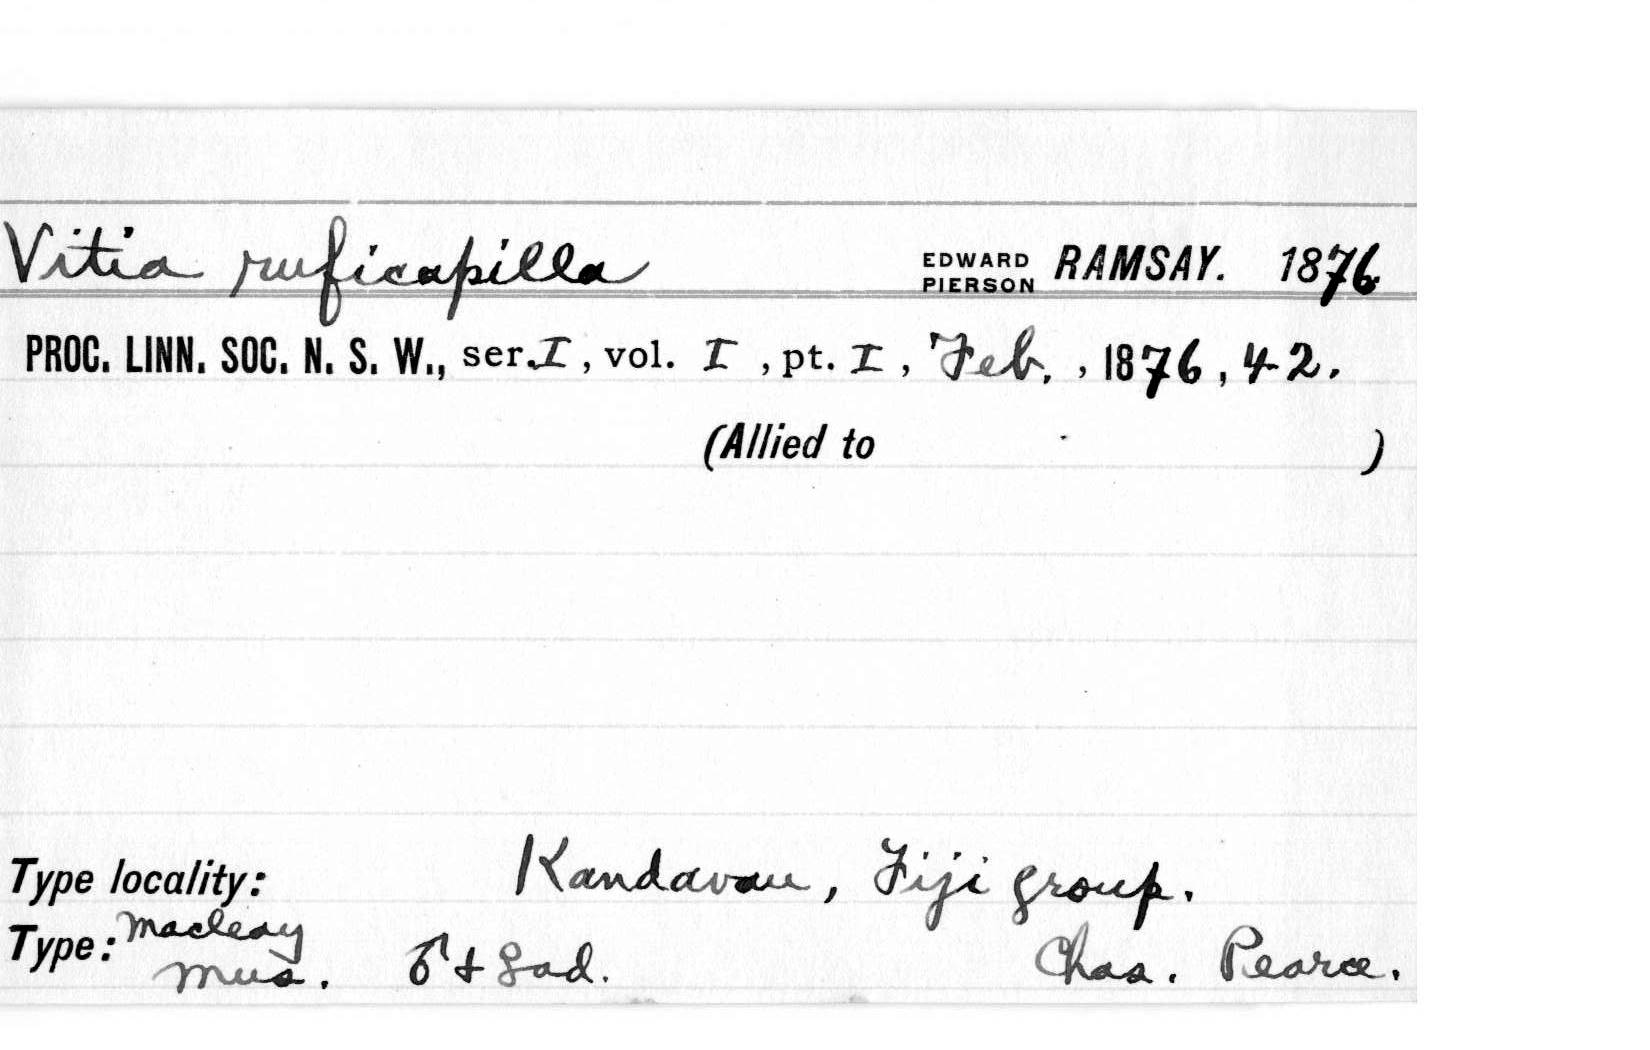 Vitia ruficapilla EDWARD PIERSON RAMSAY. 1876
PROC. LINN. SOC. N. S. W., ser. I, vol. I, pt. I, Feb., 1876, 42.
(Allied to )
Type locality: Kandavau, Fiji group.
Type: Macleay Mus. ♂ + ♀ ad. Chas. Pearce.